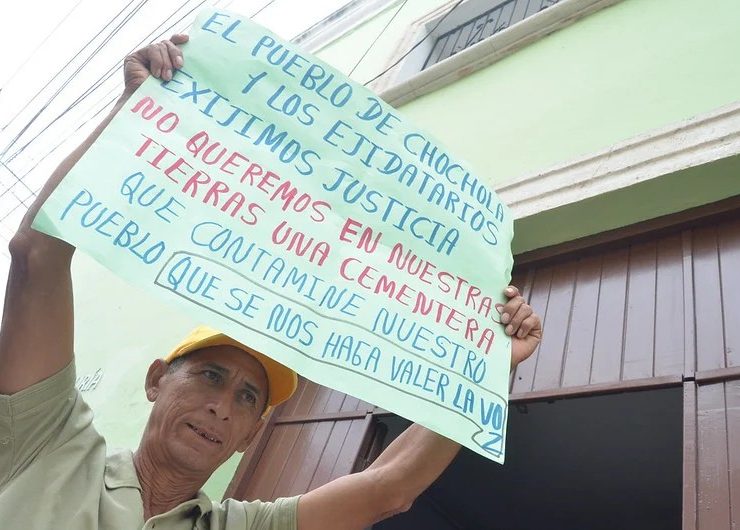 EL PUEBLO DE CHOCHOLA
Y LOS EJIDATARIOS
EXIJIMOS JUSTICIA
NO QUEREMOS EN NUESTRAS
TIERRAS UNA CEMENTERA
QUE CONTAMINE NUESTRO
PUEBLO QUE SE NOS HAGA VALER LA VOZ